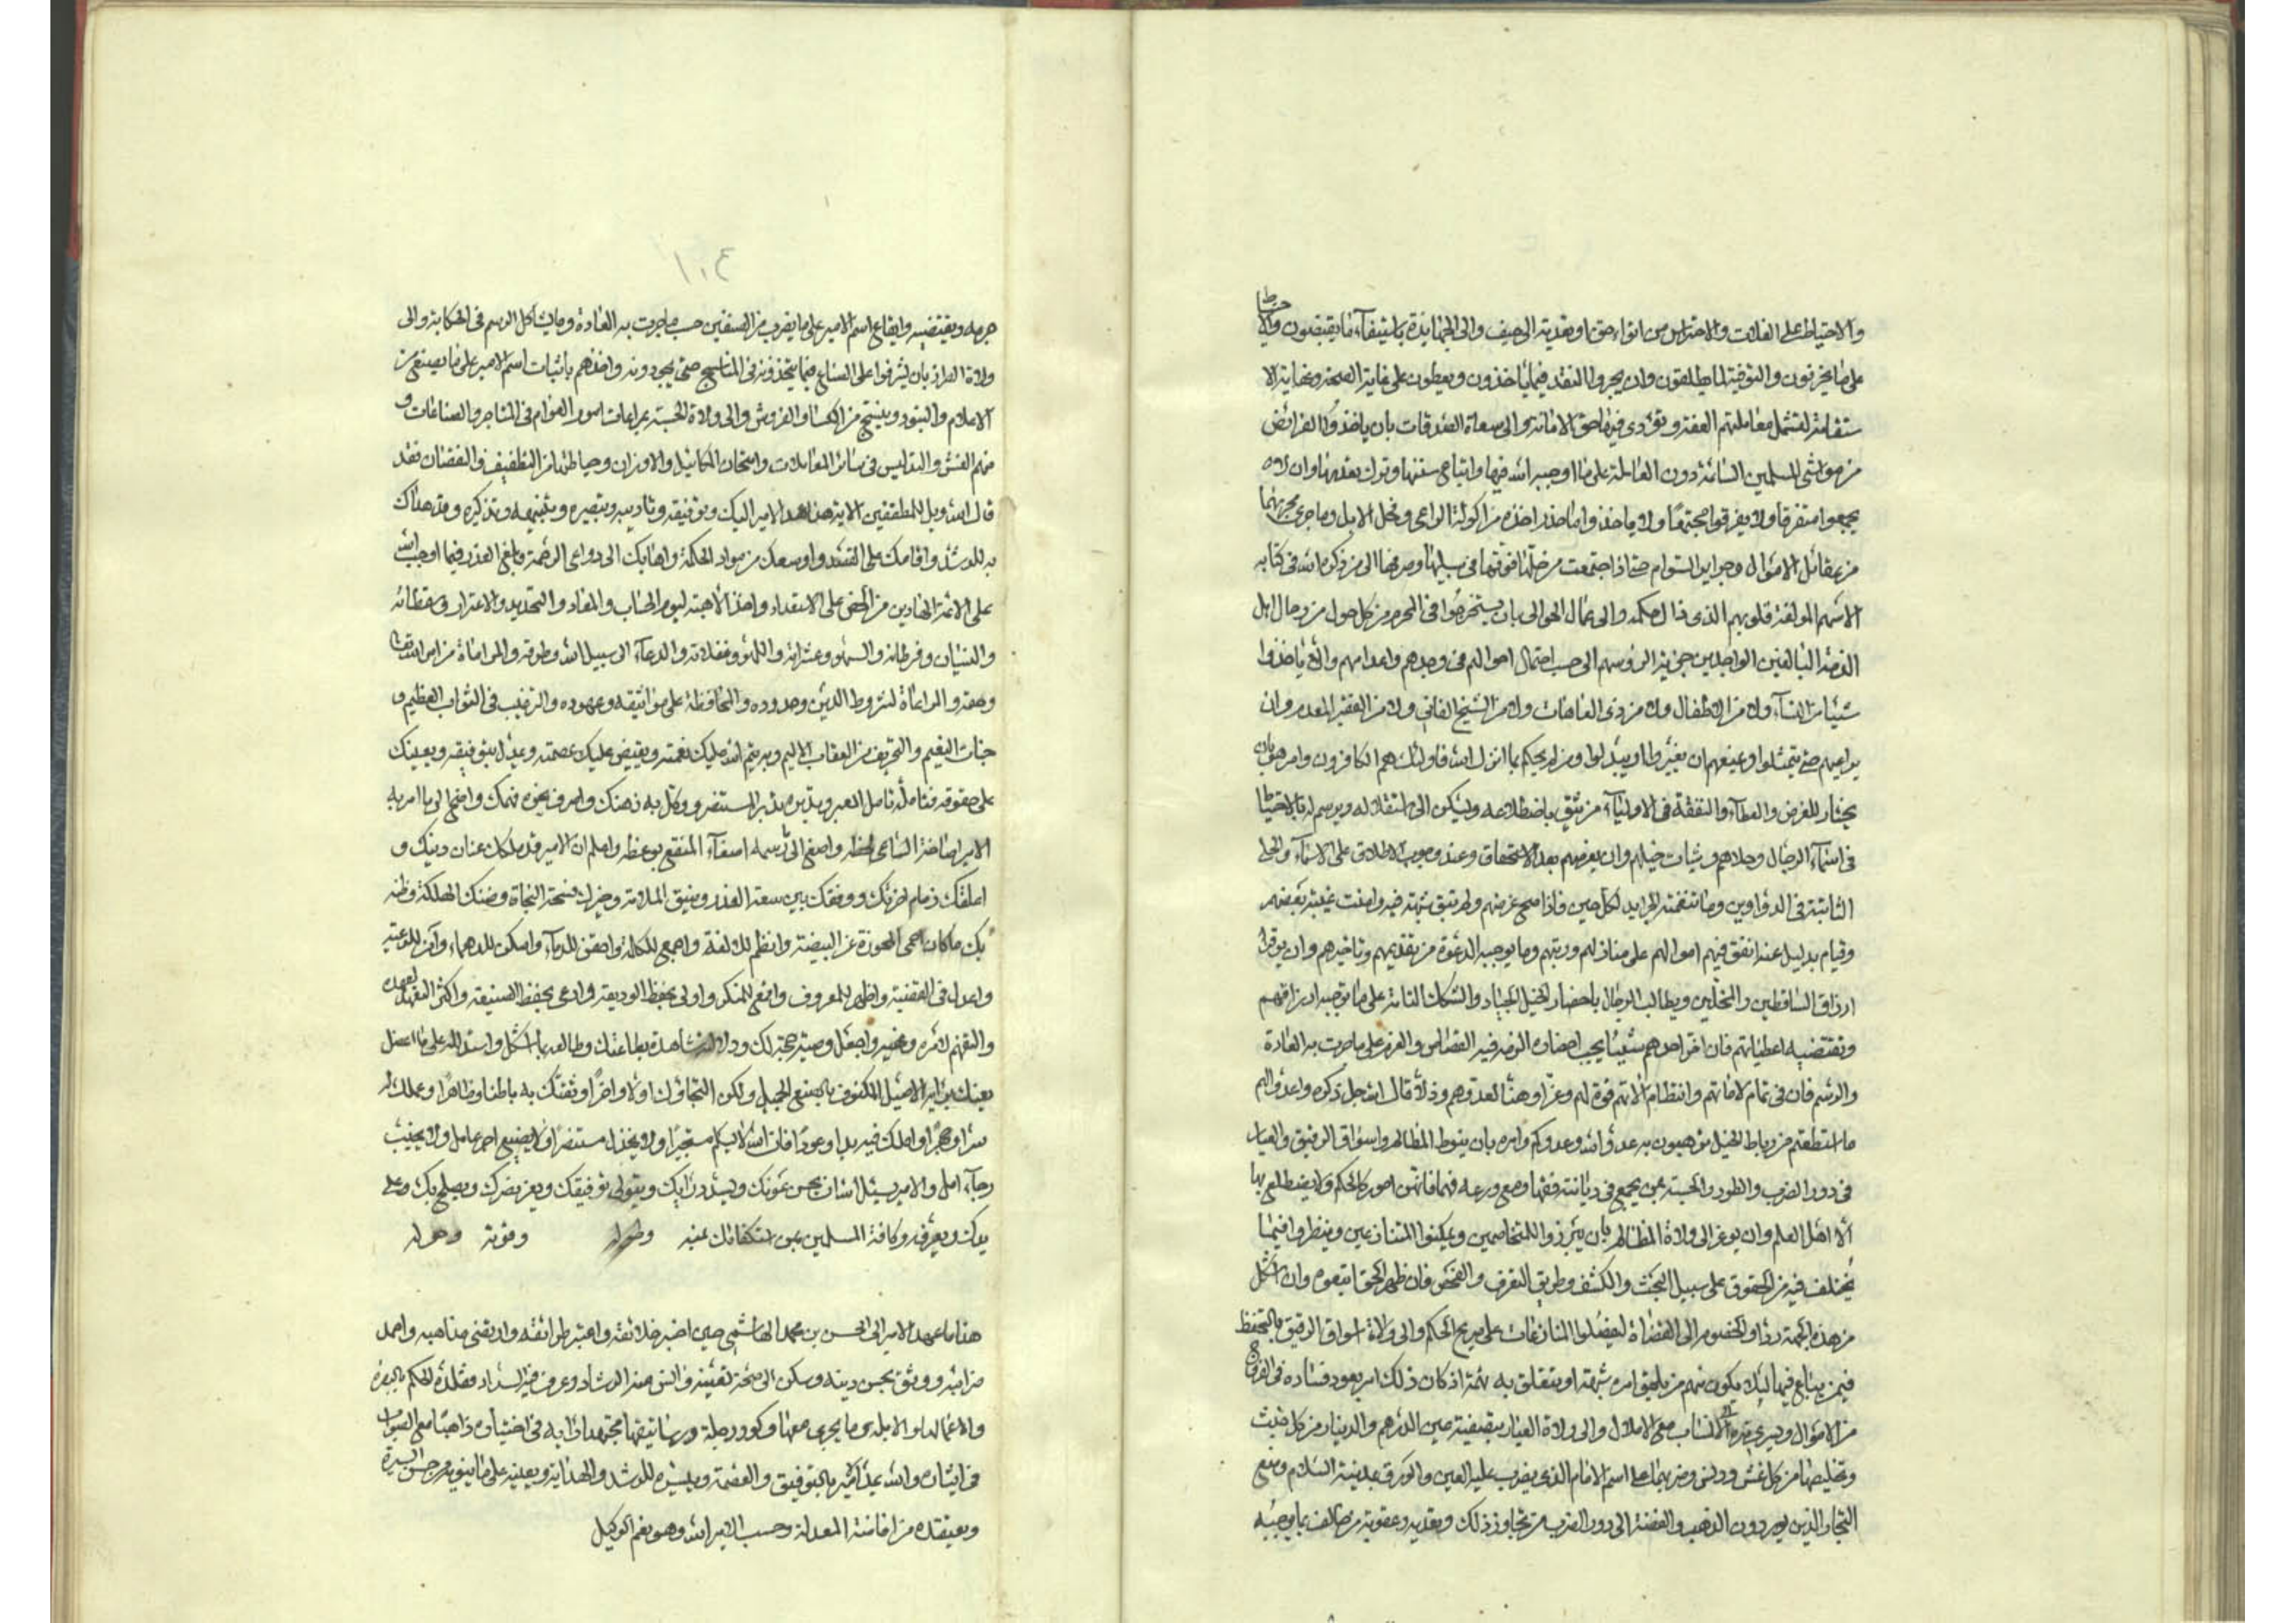 والاحتياط على الغلات والاحتراس من اتواء حق او تعديته الى حيف والى الجهابذة باستيفاء ما يقبضون والاحتياط
على ما يخزنون والتوفية لما يطلقون وان يجروا النقد فيما ياخذون ويعطون على غاية الصحة ونهاية الا
ستقامة لتشمل معاملتهم العفة وتؤدى فيها حق الامانة والى سعاة الصدقات بان ياخذوا الفرائض
من مواشى المسلمين السائمة دون العاملة على ما اوجبه الله فيها واتباع سنتها وترك تعديها وان لا
يجمعوا متفرقا ولا يفرقوا مجتمعا ولا ياخذوا ما حذر اخذه من اكولة الراعى وفحل الابل وما جرى مجراهما
من عقائل الاموال وحراير السوام حتى اذا اجتمعت من حلها فرقها فى سبيلها وصرفها الى من ذكره الله فى كتابه
الا سهم المؤلفة قلوبهم الذى زال حكمه والى عمال الجوالى بان يستخرجوا فى المحرم من كل حول من رجال اهل
الذمة البالغين الواجدين جزية الرؤسهم الى حسب احتمال احوالهم فى وجدهم واعدامهم والا ياخذوا
شيئا من النساء ولا من الاطفال ولا من ذوى العاهات ولا من الشيخ الفانى ولا من الفقير المعدم وان
يراعيهم حتى يتمثلوا وعيفهم ان يغيروا او يبدلوا ومن لم يحكم بما انزل الله فاولئك هم الكافرون وامره بان
يختار للعرض والعطاء والنفقة فى الاولياء من يثق باضطلاعه وليكن الى استقلاله ويرسم له بالاحتياط
فى اسماء الرجال وحلاهم وشيات خيلهم وان يعرضهم بعد الاستحقاق وعند وجوب الاطلاق على الاسماء والحلى
الثابتة فى الدواوين وما تتضمنه الجرايد لكل حين فاذا صح عرضهم ولم تبق شبهة فيه وامنت غيبة بعضهم
وقيام بديل عنه انفق فيهم اموالهم على منازلهم ورتبهم وما يوجبه الدعوة من تقديمهم وتاخيرهم وان يوفر
ارزاق الساقطين والمخلين ويطالب الرجال باحضار الخيل الجياد والشكك التامة على ما توجبه ارزاقهم
وتقتضيه اعطياتهم فان اخر احدهم شيئا يجب احضاره الزمه فيه القصاص والغرم على ما جرت به العادة
والرسم فان فى تمام لاماتهم وانتظام آلاتهم قوة لهم وعزا وهنا لعدوهم وذلا قال الله جل ذكره واعدوا لهم
ما استطعتم من رباط الخيل ترهبون به عدو الله وعدوكم وامره بان ينوط المظالم واسواق الرقيق والعيار
فى دور الضرب والطرد والحسبة بمن يجمع فى ديانته فقها ومع ورعه فهما فانهن امور كالحكم ولا يضطلع بها
الا اهل العلم وان يوعز الى ولاة المظالم بان يبرزوا للمتخاصمين ويمكنوا المتنازعين وينظروا فيما
يختلف فيه من الحقوق على سبيل البحث والكشف وطريق التعرف والفحص فان ظهر الحق اتبعوه وان اشكل
من هذه الجهة ردوا الخصوم الى القضاة ليفصلوا المنازعات على صريح الحكم والى ولاة اسواق الرقيق بالتحفظ
فيمن يباع فيها لئلا يكون منهم من يلحق امره شبهة او يتعلق به تهمة اذ كان ذلك امر يعود فساده فى الفروج
من الاموال ويسرى ضرره الى الانساب مع الاملال والى ولاة العيار بتصفية عين الدرهم والدينار من كل خبث
وتخليصها من كل غش ودنس وضربهما على اسم الامام الذى يضرب عليه العين والورق بمدينة السلام ومنع
التجار الذين يوردون الذهب والفضة الى دور الضرب من تجاوز ذلك وتعديه وعقوبة من خالف بما يوجبه
١٠٤
جرمه ويقتضيه وايقاع اسم الامير على ما يضرب من الصنفين حسب ما جرت به العادة وما يشاكل الرسم فى الحكاية والى
ولاة الطراز بان يشرفوا على الصناع فيما يتخذونه فى المناسج حتى يجودونه واخذهم باثبات اسم الامير على ما يصنع من
الاعلام والبنود وينسج من الكساء والفروش والى ولاة الحسبة بمراعات امور العوام فى المتاجر والصناعات و
منهم الغش والتدليس فى سائر المعاملات وامتحان المكائيل والاوزان وحياطتها من التطفيف والنقصان فقد
قال الله ويل للمطففين الاية هذا عهد الامير اليك وتوفيقه وتاديبه وتبصيره وتنبيهه وتذكيره وقد هداك
به للرشد واقامك على القصد واوسعك من مواد الحكمة واهابك الى دواعى الرحمة وبلغ العذر فيما اوجب الله
على الائمة الهادين من الحض على الاستعداد واخذ الاهبة ليوم الحساب والمعاد والتحذير والاغترار وسقطاته
والنسيان وفرطاته والسهو وعثراته واللهو وغفلاته والدعاء الى سبيل الله وطرقه والمراعاة من امر الله تعالى
وحقه والمراعاة لشروط الدين وحدوده والمحافظة على مواثيقه وعهوده والترغيب فى الثواب العظيم و
جنات النعيم والتخويف من العقاب الاليم وبه يتم الله عليك نعمته ويفيض عليك عصمته ويمدك بتوفيقه ويعينك
على حقوقه فتامله تامل المعبر وتدبره تدبر المستنصر ووكل به ذهنك واصرف نحوه فهمك واضح الى ما امر به
الامير اصاخة الساعى لحظه واصغ الى رسمه اصغاء المنتفع بوعظه واعلم ان الامير قد ملكك عنان دينك و
اعلقك زمام اخرتك ووقفك بين سعة العذر وضيق الملامة وخيرك فسحة النجاة وضنك الهلكة وظنه
بك ما كان احمى للحوزة عن البيضة وانظم للالفة واجمع للكلمة واحقن للدماء واسكن للدهماء وآمن للرعية
واعدل فى القضية واظهر للمعروف واقمع للمنكر واولى بحفظ الوديعة وادعى بحفظ الصنيعة واكثر التعهد لعهده
والتفهم لامره ونهيه واجعل وصيته حجة لك ودلالة شاهدة بطاعتك وطالعه بما اشكل واستدلله على ما اعضل
رجاء امل والامير يسئل الله ان يحسن عونك ويسدد رايك ويتولى توفيقك ويعز نصرك ويصلح بك وعلى
يدك ويعرفه وكافة المسلمين يمن استكفائك عنه وطوله وقوته وحوله
هذا ما عهد الامير الى الحسن بن محمد الهاشمى حين اختبر خلائقه واعتبر طرائقه وارتضى مذاهبه واحمد
ضرائبه ووثق بحسن دينه وسكن الى صحة يقينه وآنس منه الرشاد وعرف فيه السداد فقلده الحكم بالبصرة
والاعمال والابلة وما يجرى معها وكور دجلة وربها تيقها مجتهدا رايه فى اختياره ذاهبا مع الصواب
فى ايثاره والله يمد الامير بالتوفيق والعصمة وييسره للرشد والهداية ويعينه على ما ينويه من حسن السيرة
ويعتقده من افاضة المعدلة وحسب الامير الله وهو نعم الوكيل